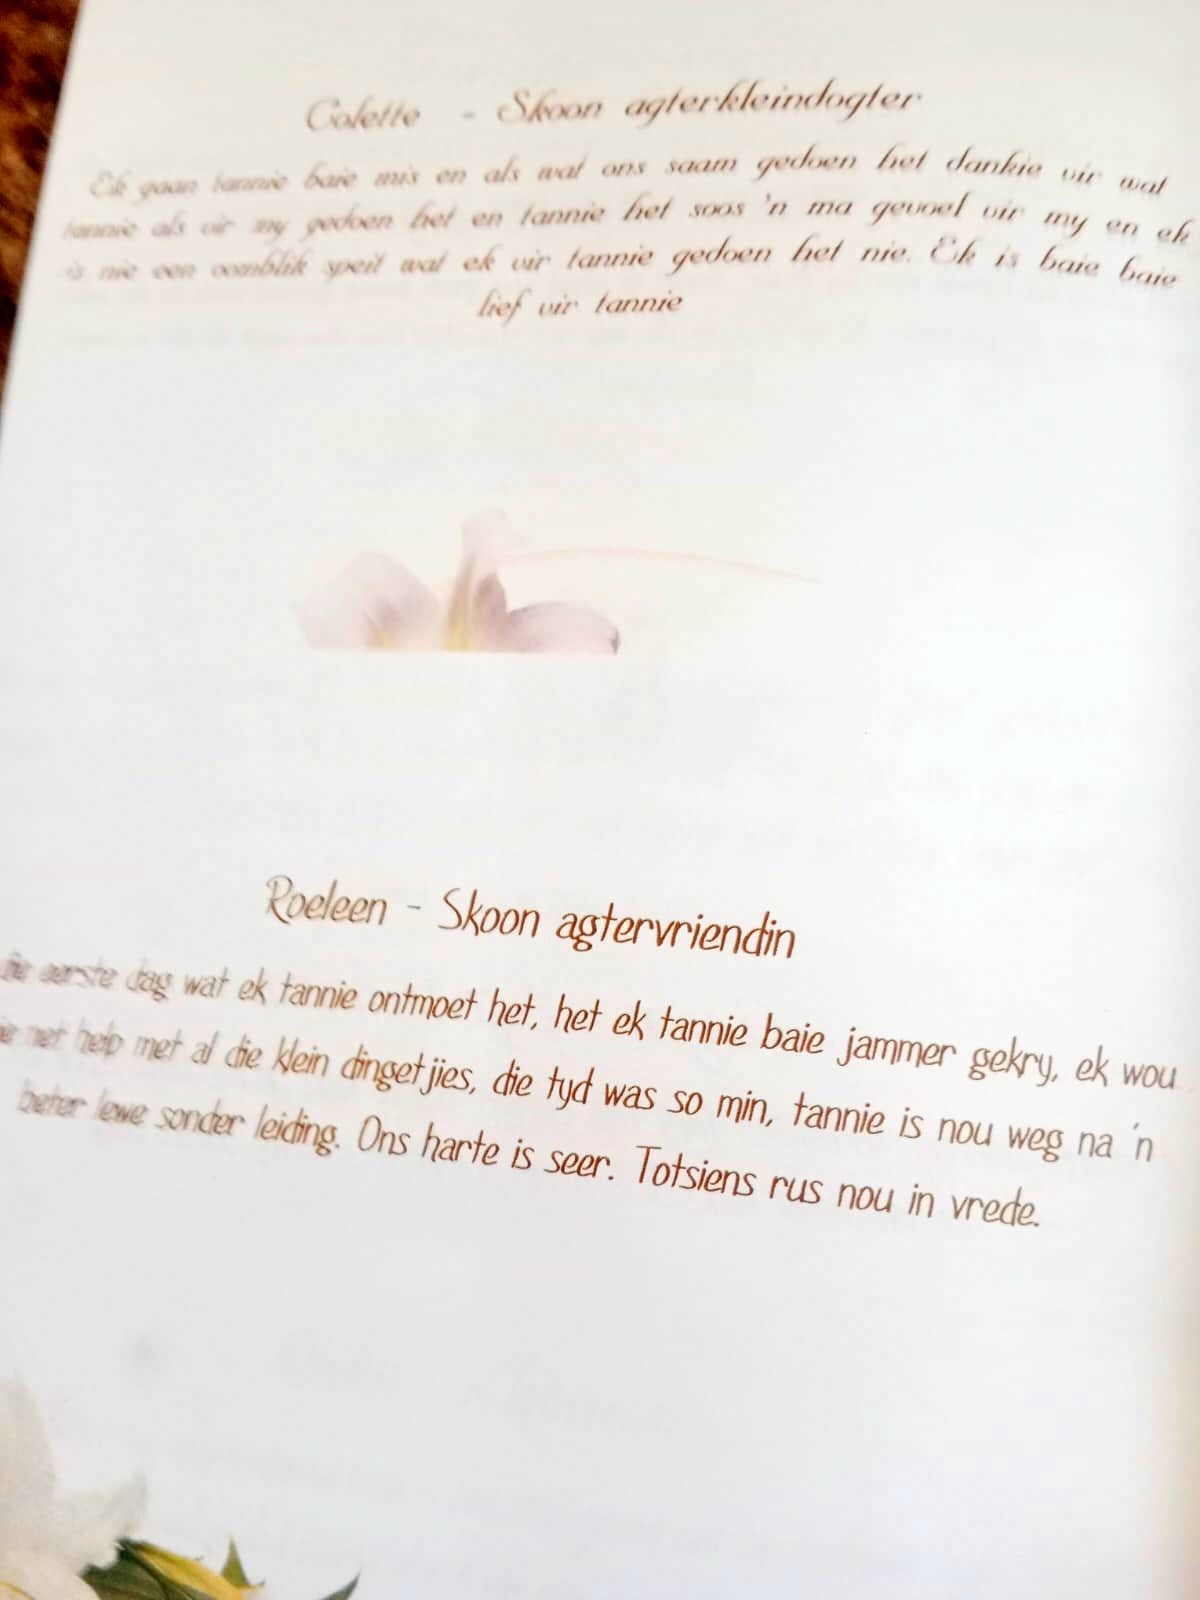 Colette - Skoon agterkleindogter
Ek gaan tannie baie mis en als wat ons saam gedoen het dankie vir wat
tannie als vir my gedoen het en tannie het soos 'n ma gevoel vir my en ek
is nie een oomblik speit wat ek vir tannie gedoen het nie. Ek is baie baie
lief vir tannie
Roeleen - Skoon agtervriendin
die eerste dag wat ek tannie ontmoet het, het ek tannie baie jammer gekry, ek wou
net help met al die klein dingetjies, die tyd was so min, tannie is nou weg na 'n
beter lewe sonder leiding. Ons harte is seer. Totsiens rus nou in vrede.